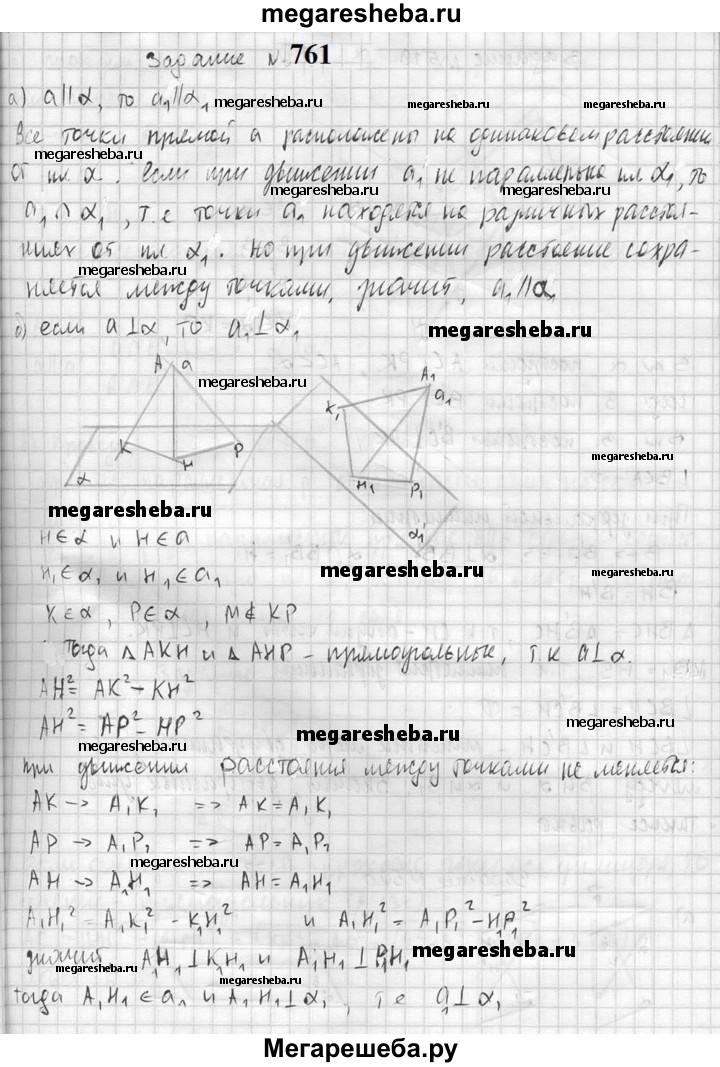 megaresheba.ru
Задание № 761
а) a || α, то a₁ || α₁ megaresheba.ru megaresheba.ru megaresheba.ru
Все точки прямой a расположены на одинаковом расстоянии
megaresheba.ru megaresheba.ru
от пл α. Если при движении a₁ не параллельна пл α₁, то
a₁ ∩ α₁, т.е точки a₁ находятся на различных расстоя-
ниях от пл α₁. Но при движении расстояние сохра-
megaresheba.ru megaresheba.ru
няется между точками, значит, a₁ || α₁
б) если a ⊥ α, то a₁ ⊥ α₁ megaresheba.ru
A a A₁ a₁
megaresheba.ru
K H P K₁ H₁ P₁
megaresheba.ru
α α₁
megaresheba.ru
H ∈ α и H ∈ a
H₁ ∈ α₁ и H₁ ∈ a₁ megaresheba.ru
K ∈ α, P ∈ α, M ∉ KP
Тогда Δ AKH и Δ AHP - прямоугольные, т.к a ⊥ α.
AH² = AK² - KH²
AH² = AP² - HP² megaresheba.ru megaresheba.ru
megaresheba.ru
при движении расстояния между точками не меняется:
AK → A₁K₁ => AK = A₁K₁
AP → A₁P₁ => AP = A₁P₁
megaresheba.ru
AH → A₁H₁ => AH = A₁H₁
A₁H₁² = A₁K₁² - K₁H₁² и A₁H₁² = A₁P₁² - H₁P₁²
значит A₁H₁ ⊥ K₁H₁ и A₁H₁ ⊥ P₁H₁ megaresheba.ru
megaresheba.ru megaresheba.ru
тогда A₁H₁ ∈ a₁ и A₁H₁ ⊥ α₁, т.е a₁ ⊥ α₁
megaresheba.ru megaresheba.ru
Мегарешеба.ру